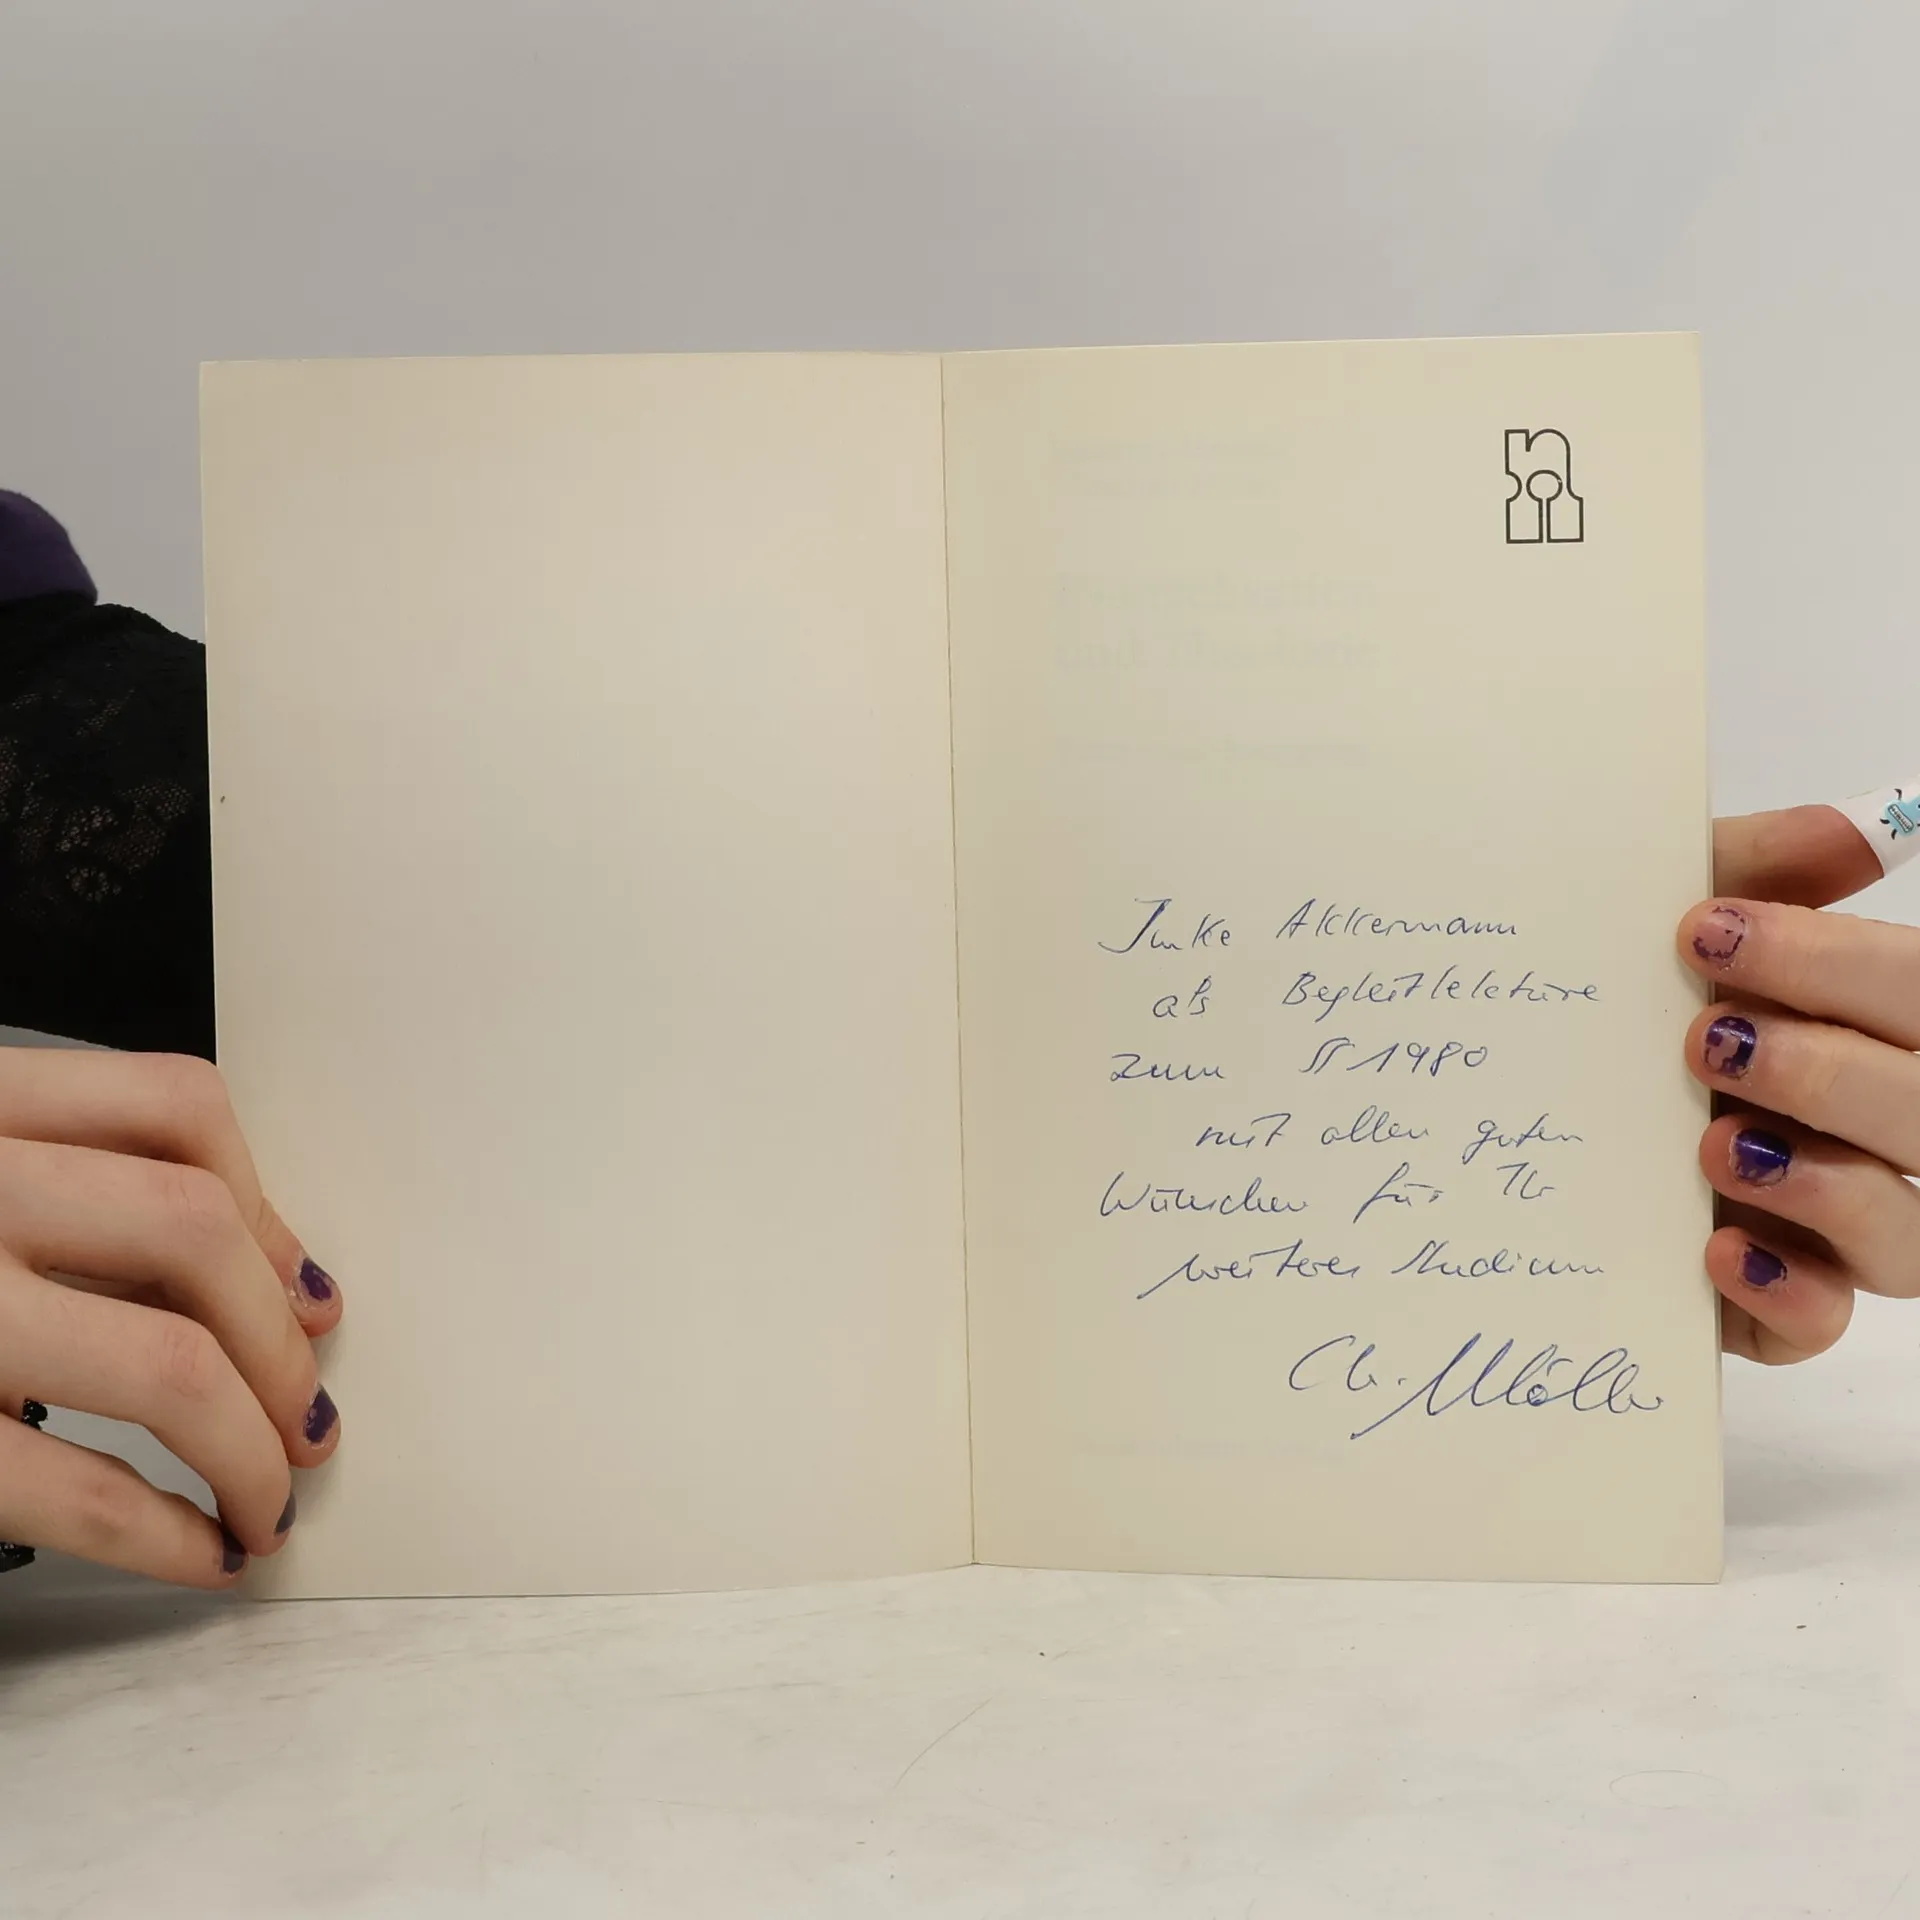 Imke Akkermann
als Begleitlektüre
zum SS 1980
mit allen guten
Wünschen für Ihr
weiteres Studium
Ch. Möller